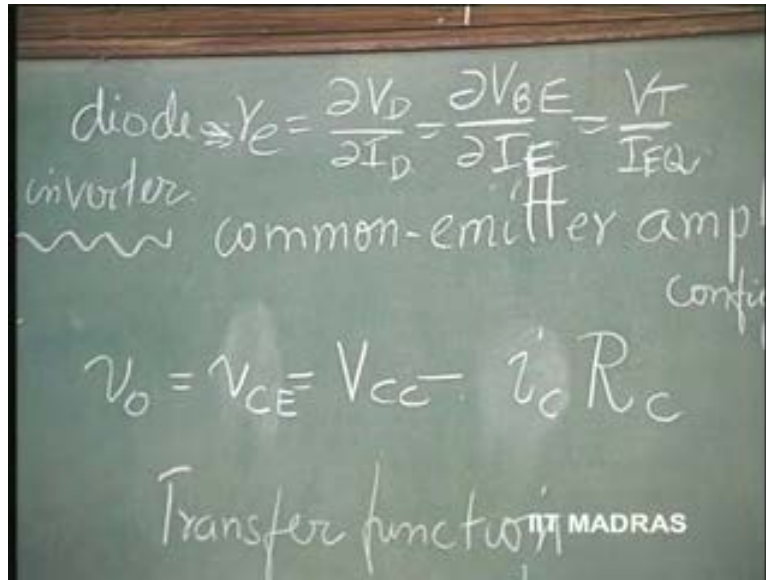 diode ⇒ re = ∂VD/∂ID = ∂VBE/∂IE = VT/IEQ
inverter
common-emitter ampl
config
vo = vCE = VCC - ic RC
Transfer function
IIT MADRAS